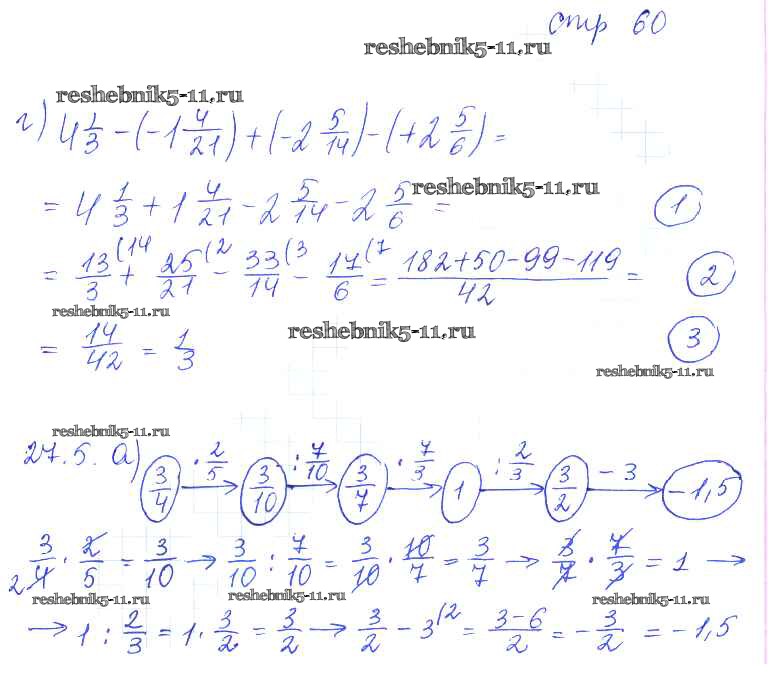 стр 60
reshebnik5-11.ru
reshebnik5-11.ru
г) 4 1/3 − (−1 4/21) + (−2 5/14) − (+2 5/6) =
= 4 1/3 + 1 4/21 − 2 5/14 − 2 5/6 = reshebnik5-11.ru ①
= 13/3 (14 + 25/21 (2 − 33/14 (3 − 17/6 (7 = (182+50−99−119)/42 = ②
reshebnik5-11.ru
= 14/42 = 1/3 reshebnik5-11.ru ③
reshebnik5-11.ru
reshebnik5-11.ru
27.5. а) 3/4 · 2/5 → 3/10 : 7/10 → 3/7 · 7/3 → 1 : 2/3 → 3/2 − 3 → −1,5
3/4 2 · 2/5 = 3/10 → 3/10 : 7/10 = 3/10 · 10/7 = 3/7 → 3/7 · 7/3 = 1 →
reshebnik5-11.ru reshebnik5-11.ru reshebnik5-11.ru
→ 1 : 2/3 = 1 · 3/2 = 3/2 → 3/2 − 3 (2 = (3−6)/2 = − 3/2 = −1,5